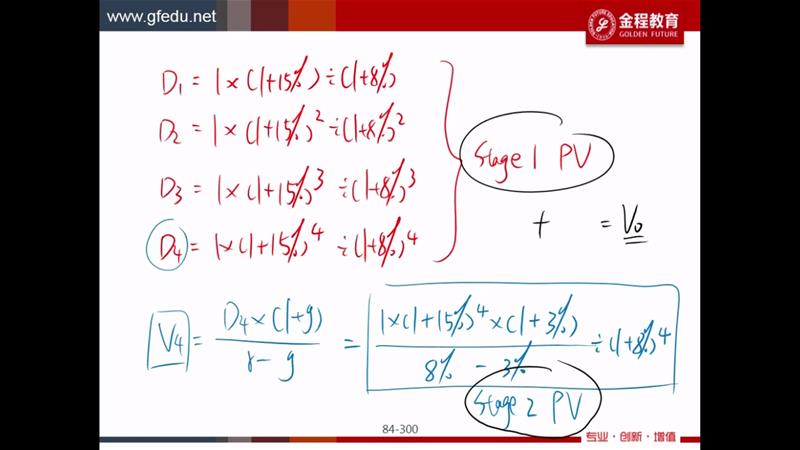 www.gfedu.net
金程教育
GOLDEN FUTURE
D₁ = 1×(1+15%)÷(1+8%)
D₂ = 1×(1+15%)²÷(1+8%)²
Stage 1 PV
D₃ = 1×(1+15%)³÷(1+8%)³
+ = V₀
D₄ = 1×(1+15%)⁴÷(1+8%)⁴
V₄ = D₄×(1+g) / r-g = 1×(1+15%)⁴×(1+3%) / 8% - 3% ÷(1+8%)⁴
Stage 2 PV
84-300
专业·创新·增值